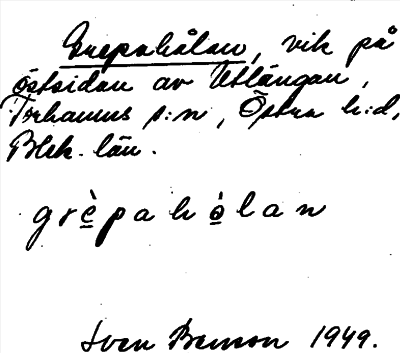 Grepahålan, vik på
östsidan av Utlängan,
Torhamns s:n, Östra h:d,
Blek. län.
grèpahòlan
Sven Benson 1949.